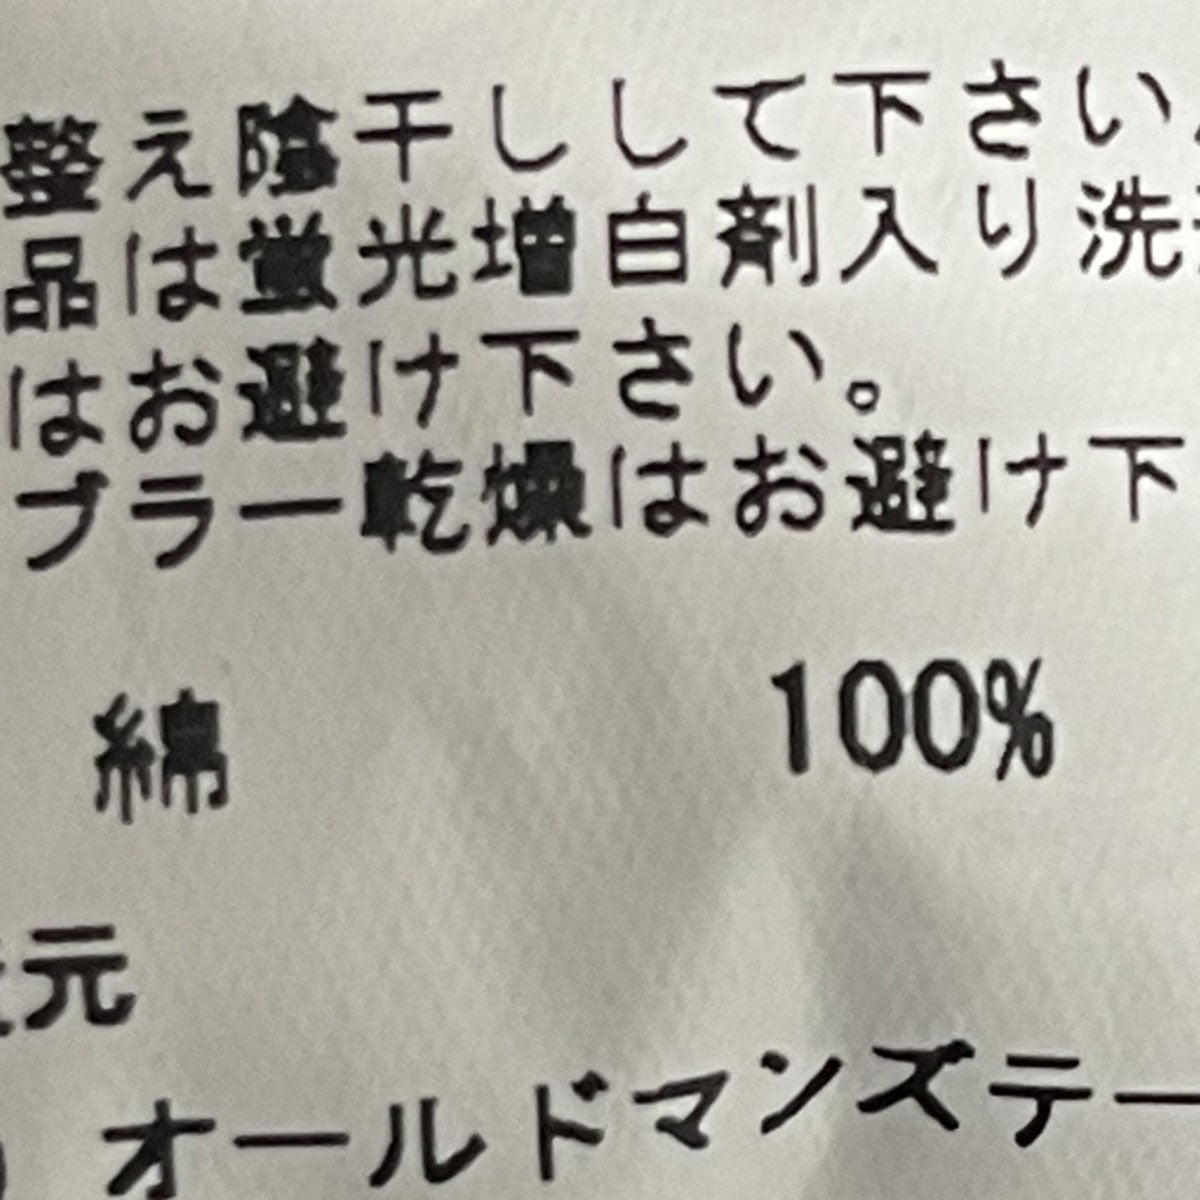 整え陰干しして下さい。
品は蛍光増白剤入り洗
はお避け下さい。
ブラー乾燥はお避け下
綿 100%
元
オールドマンズテー